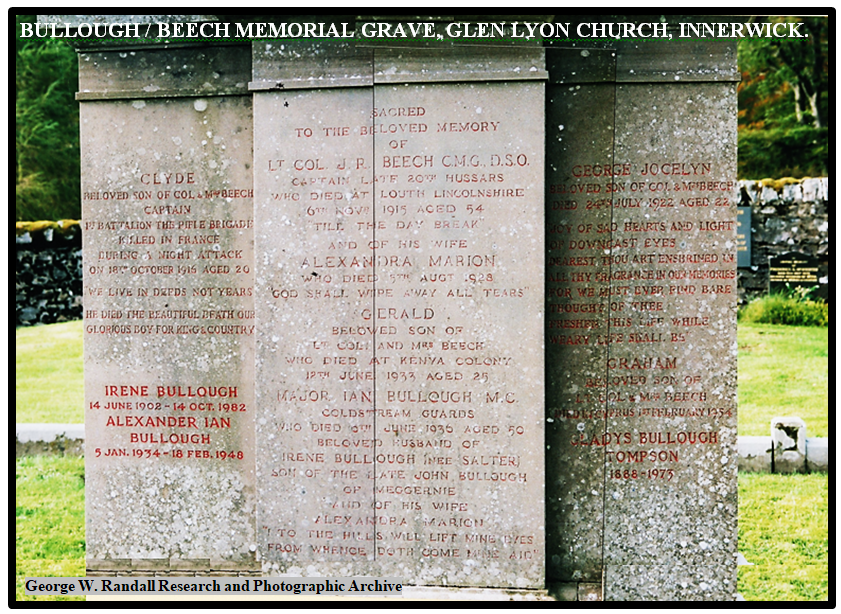 BULLOUGH / BEECH MEMORIAL GRAVE, GLEN LYON CHURCH, INNERWICK.
CLYDE
BELOVED SON OF COL & MRS BEECH
CAPTAIN
1ST BATTALION THE RIFLE BRIGADE
KILLED IN FRANCE
DURING A NIGHT ATTACK
ON 18TH OCTOBER 1916 AGED 20
"WE LIVE IN DEEDS NOT YEARS"
HE DIED THE BEAUTIFUL DEATH OUR
GLORIOUS BOY FOR KING & COUNTRY
IRENE BULLOUGH
14 JUNE 1902 - 14 OCT. 1982
ALEXANDER IAN
BULLOUGH
5 JAN. 1934 - 18 FEB. 1948
SACRED
TO THE BELOVED MEMORY
OF
LT COL. J. R. BEECH C.M.G., D.S.O.
CAPTAIN LATE 20TH HUSSARS
WHO DIED AT LOUTH LINCOLNSHIRE
6TH NOVR 1915 AGED 54
"TILL THE DAY BREAK"
AND OF HIS WIFE
ALEXANDRA MARION
WHO DIED 5TH AUGT 1928
"GOD SHALL WIPE AWAY ALL TEARS"
GERALD
BELOVED SON OF
LT COL. AND MRS BEECH
WHO DIED AT KENYA COLONY
12TH JUNE 1933 AGED 25
MAJOR IAN BULLOUGH M.C.
COLDSTREAM GUARDS
WHO DIED 6TH JUNE 1936 AGED 50
BELOVED HUSBAND OF
IRENE BULLOUGH (NEE SALTER)
SON OF THE LATE JOHN BULLOUGH
OF MEGGERNIE
AND OF HIS WIFE
ALEXANDRA MARION
"TO THE HILLS WILL LIFT MINE EYES
FROM WHENCE DOTH COME MINE AID"
GEORGE JOCELYN
BELOVED SON OF COL & MRS BEECH
DIED 24TH JULY 1922 AGED 22
JOY OF SAD HEARTS AND LIGHT
OF DOWNCAST EYES
DEAREST THOU ART ENSHRINED IN
ALL THY FRAGRANCE IN OUR MEMORIES
FOR WE MUST EVER FIND BARE
THOUGHT OF THEE
FRESHEN THIS LIFE WHILE
WEARY LIFE SHALL BE
GRAHAM
BELOVED SON OF
LT COL & MRS BEECH
CYPRUS 1ST FEBRUARY 1954
GLADYS BULLOUGH
TOMPSON
1888-1973
George W. Randall Research and Photographic Archive